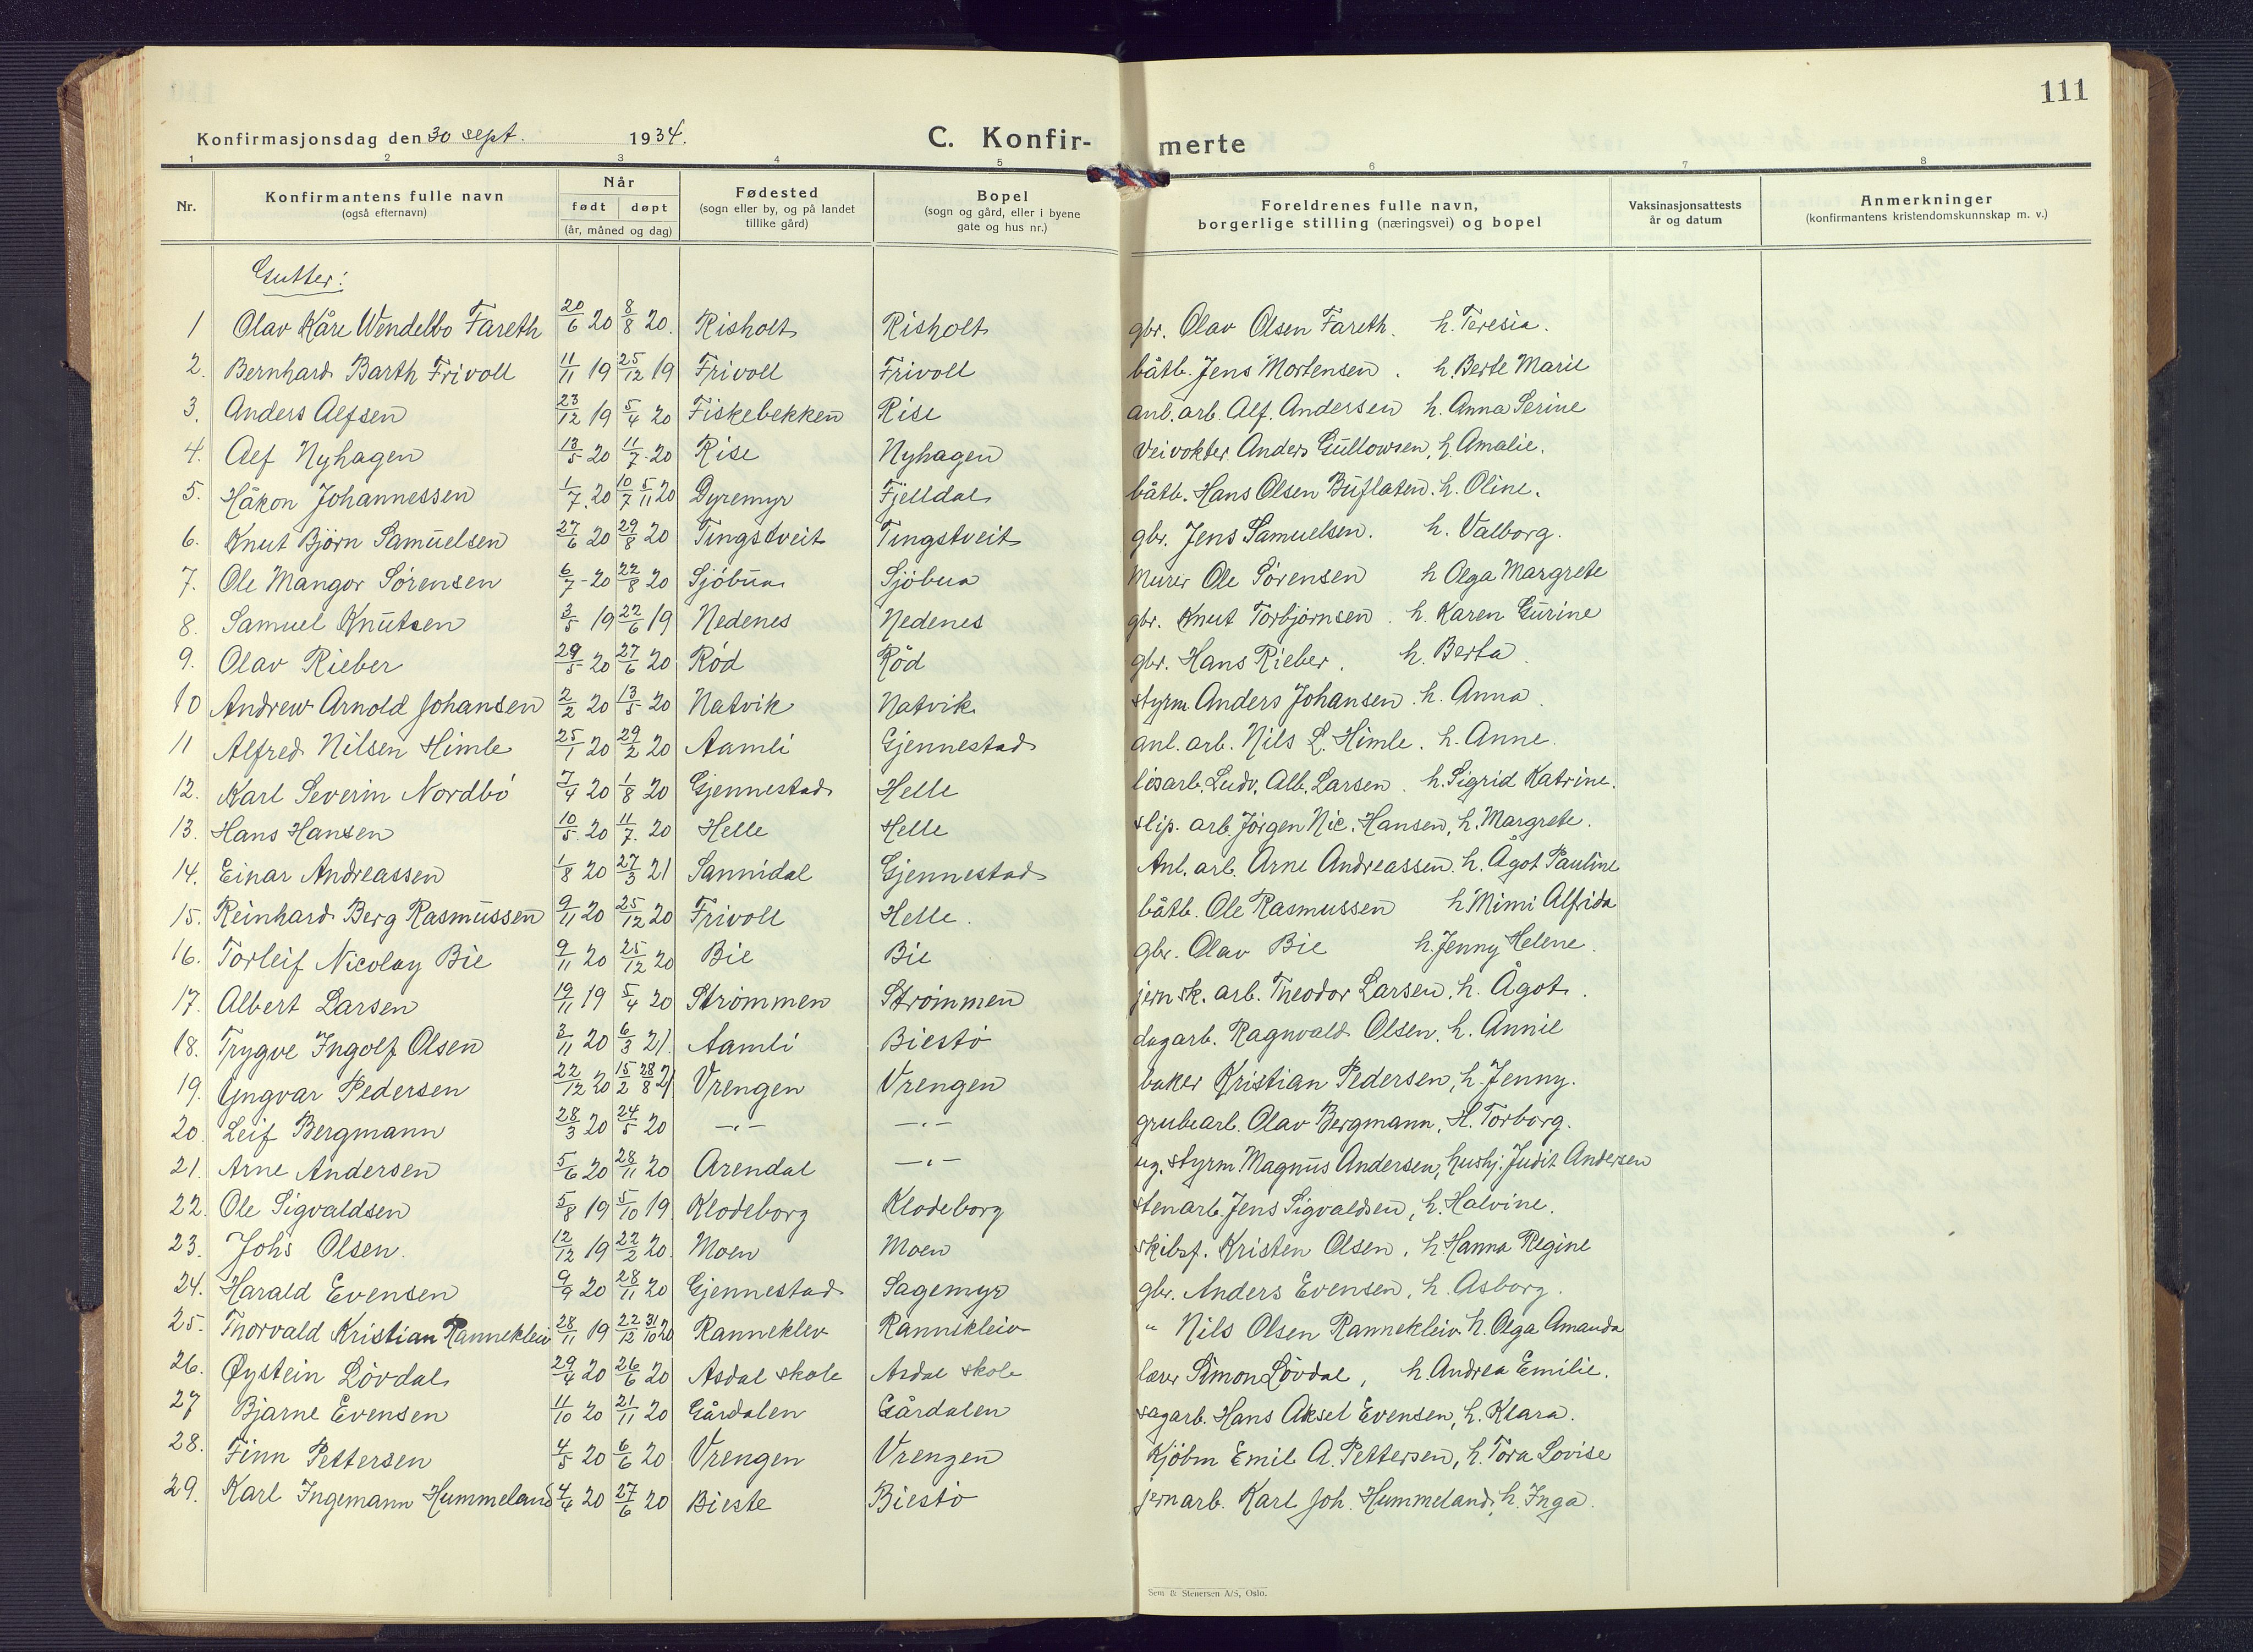 111
Konfirmasjonsdag den 30 sept. 1934.
C. Konfir- merte
1 2 3 4 5 6 7 8
Nr. Konfirmantens fulle navn (også efternavn) Når født døpt (år, måned og dag) Fødested (sogn eller by, og på landet tillike gård) Bopel (sogn og gård, eller i byene gate og hus nr.) Foreldrenes fulle navn, borgerlige stilling (næringsvei) og bopel Vaksinasjonsattests år og datum Anmerkninger (konfirmantens kristendomskunnskap m. v.)
Gutter:
1 Olav Kåre Wendelbo Fareth 20/6 20 8/8 20. Risholt Risholt gbr. Olav Olsen Fareth. h. Teresia.
2. Bernhard Barth Frivoll 11/11 19 25/12 19 Frivoll Frivoll båtb. Jens Mortensen. h. Berte Marie
3. Anders Alfsen 23/12 19 5/4 20 Fiskebekken Rise anl. arb. Alf. Andersen h. Anna Serine
4. Alf Nyhagen 13/5 20 11/7 20 Rise Nyhagen Veivokter Anders Gullowsen, h. Amalie.
5. Håkon Johannessen 1/7. 20 10/7 5/11 20 Dyremyr Fjelldal båtb. Hans Olsen Buflaten. h. Oline.
6. Knut Bjørn Samuelsen 27/6 20 29/8 20 Tingstveit Tingstveit gbr. Jens Samuelsen. h. Valborg.
7. Ole Mangor Sörensen 6/7 20 22/8 20 Sjöbua Sjöbua Murer Ole Sörensen h Olga Margrete
8. Samuel Knutsen 3/5 19 22/6 19 Nedenes Nedenes gbr. Knut Torbjörnsen. h. Karen Gurine
9. Olav Rieber 29/5 20 27/6 20 Röd Röd gbr. Hans Rieber. h. Berta.
10 Andrew Arnold Johansen 2/2 20 13/5 20 Natvik Natvik styrm Anders Johansen. h. Anna.
11 Alfred Nilsen Himle 25/1 20 29/2 20 Aamli Gjennestad anl. arb. Nils L. Himle. h. Anne.
12. Karl Severin Nordbö 7/4 20 1/8 20 Gjennestad Helle lösarb. Ludv. Alb. Larsen. h. Sigrid Katrine.
13. Hans Hansen 10/5. 20 11/7. 20 Helle Helle slip. arb. Jörgen Nic. Hansen, h. Margrete.
14. Einar Andreassen 1/8 20 27/3 21 Sannidal Gjennestad Anl. arb. Arne Andreassen. h. Ågot Pauline
15. Reinhard Berg Rasmussen 9/11 20 25/12 20 Frivoll Helle. båtb. Ole Rasmussen h Mimi Alfrida
16. Torleif Nicolay Bie 9/11 20 25/12 20 Bie Bie gbr. Olav Bie h. Jenny Helene.
17. Albert Larsen 19/11 19 5/4 20 Strömmen Strömmen jern sk. arb. Theodor Larsen. h. Ågot.
18. Trygve Ingolf Olsen 3/11 20 6/3 21. Aamli Biestö dagarb. Ragnvald Olsen. h. Annie
19. Yngvar Pedersen 22/12 20 15/2 28/8 21 Vrengen Vrengen baker Kristian Pedersen, h. Jenny.
20. Leif Bergmann 28/3 20 24/5 20 —"— —"— grubearb. Olav Bergmann, H. Torborg.
21. Arne Andersen 5/6 20 28/11 20 Arendal —"— ug. styrm Magnus Andersen, hushj. Judit Andersen
22. Ole Sigvaldsen 5/8 19 5/10 19. Klodeborg Klodeborg stenarb. Jens Sigvaldsen, h. Halvine.
23. Johs Olsen. 12/12 19 22/2 20. Moen Moen skibsf. Kristen Olsen. h. Hanna Regine
24. Harald Evensen 9/9 20 28/11 20 Gjennestad Sagemyr gbr. Anders Evensen. h. Asborg.
25. Thorvald Kristian Rannekleiv 28/11 19 22/12 31/10 20 Ranneklev Rannekleiv " Nils Olsen Rannekleiv. h. Olga Amanda
26. Øystein Lövdal 29/4 20 26/6 20 Asdal skole Asdal skole lærer Simon Lövdal, h. Andrea Emilie.
27 Bjarne Evensen 11/10 20 21/11 20 Gårdalen Gårdalen sagarb. Hans Aksel Evensen, h. Klara.
28. Finn Pettersen 4/5 20 6/6 20 Vrengen Vrengen Kjöbm Emil A. Pettersen, h. Tora Lovise
29. Karl Ingemann Hummeland 4/4 20 27/6 20 Bieste Biestö jernarb. Karl Joh. Hummeland, h. Inga.
Sem & Stenersen A/S, Oslo.